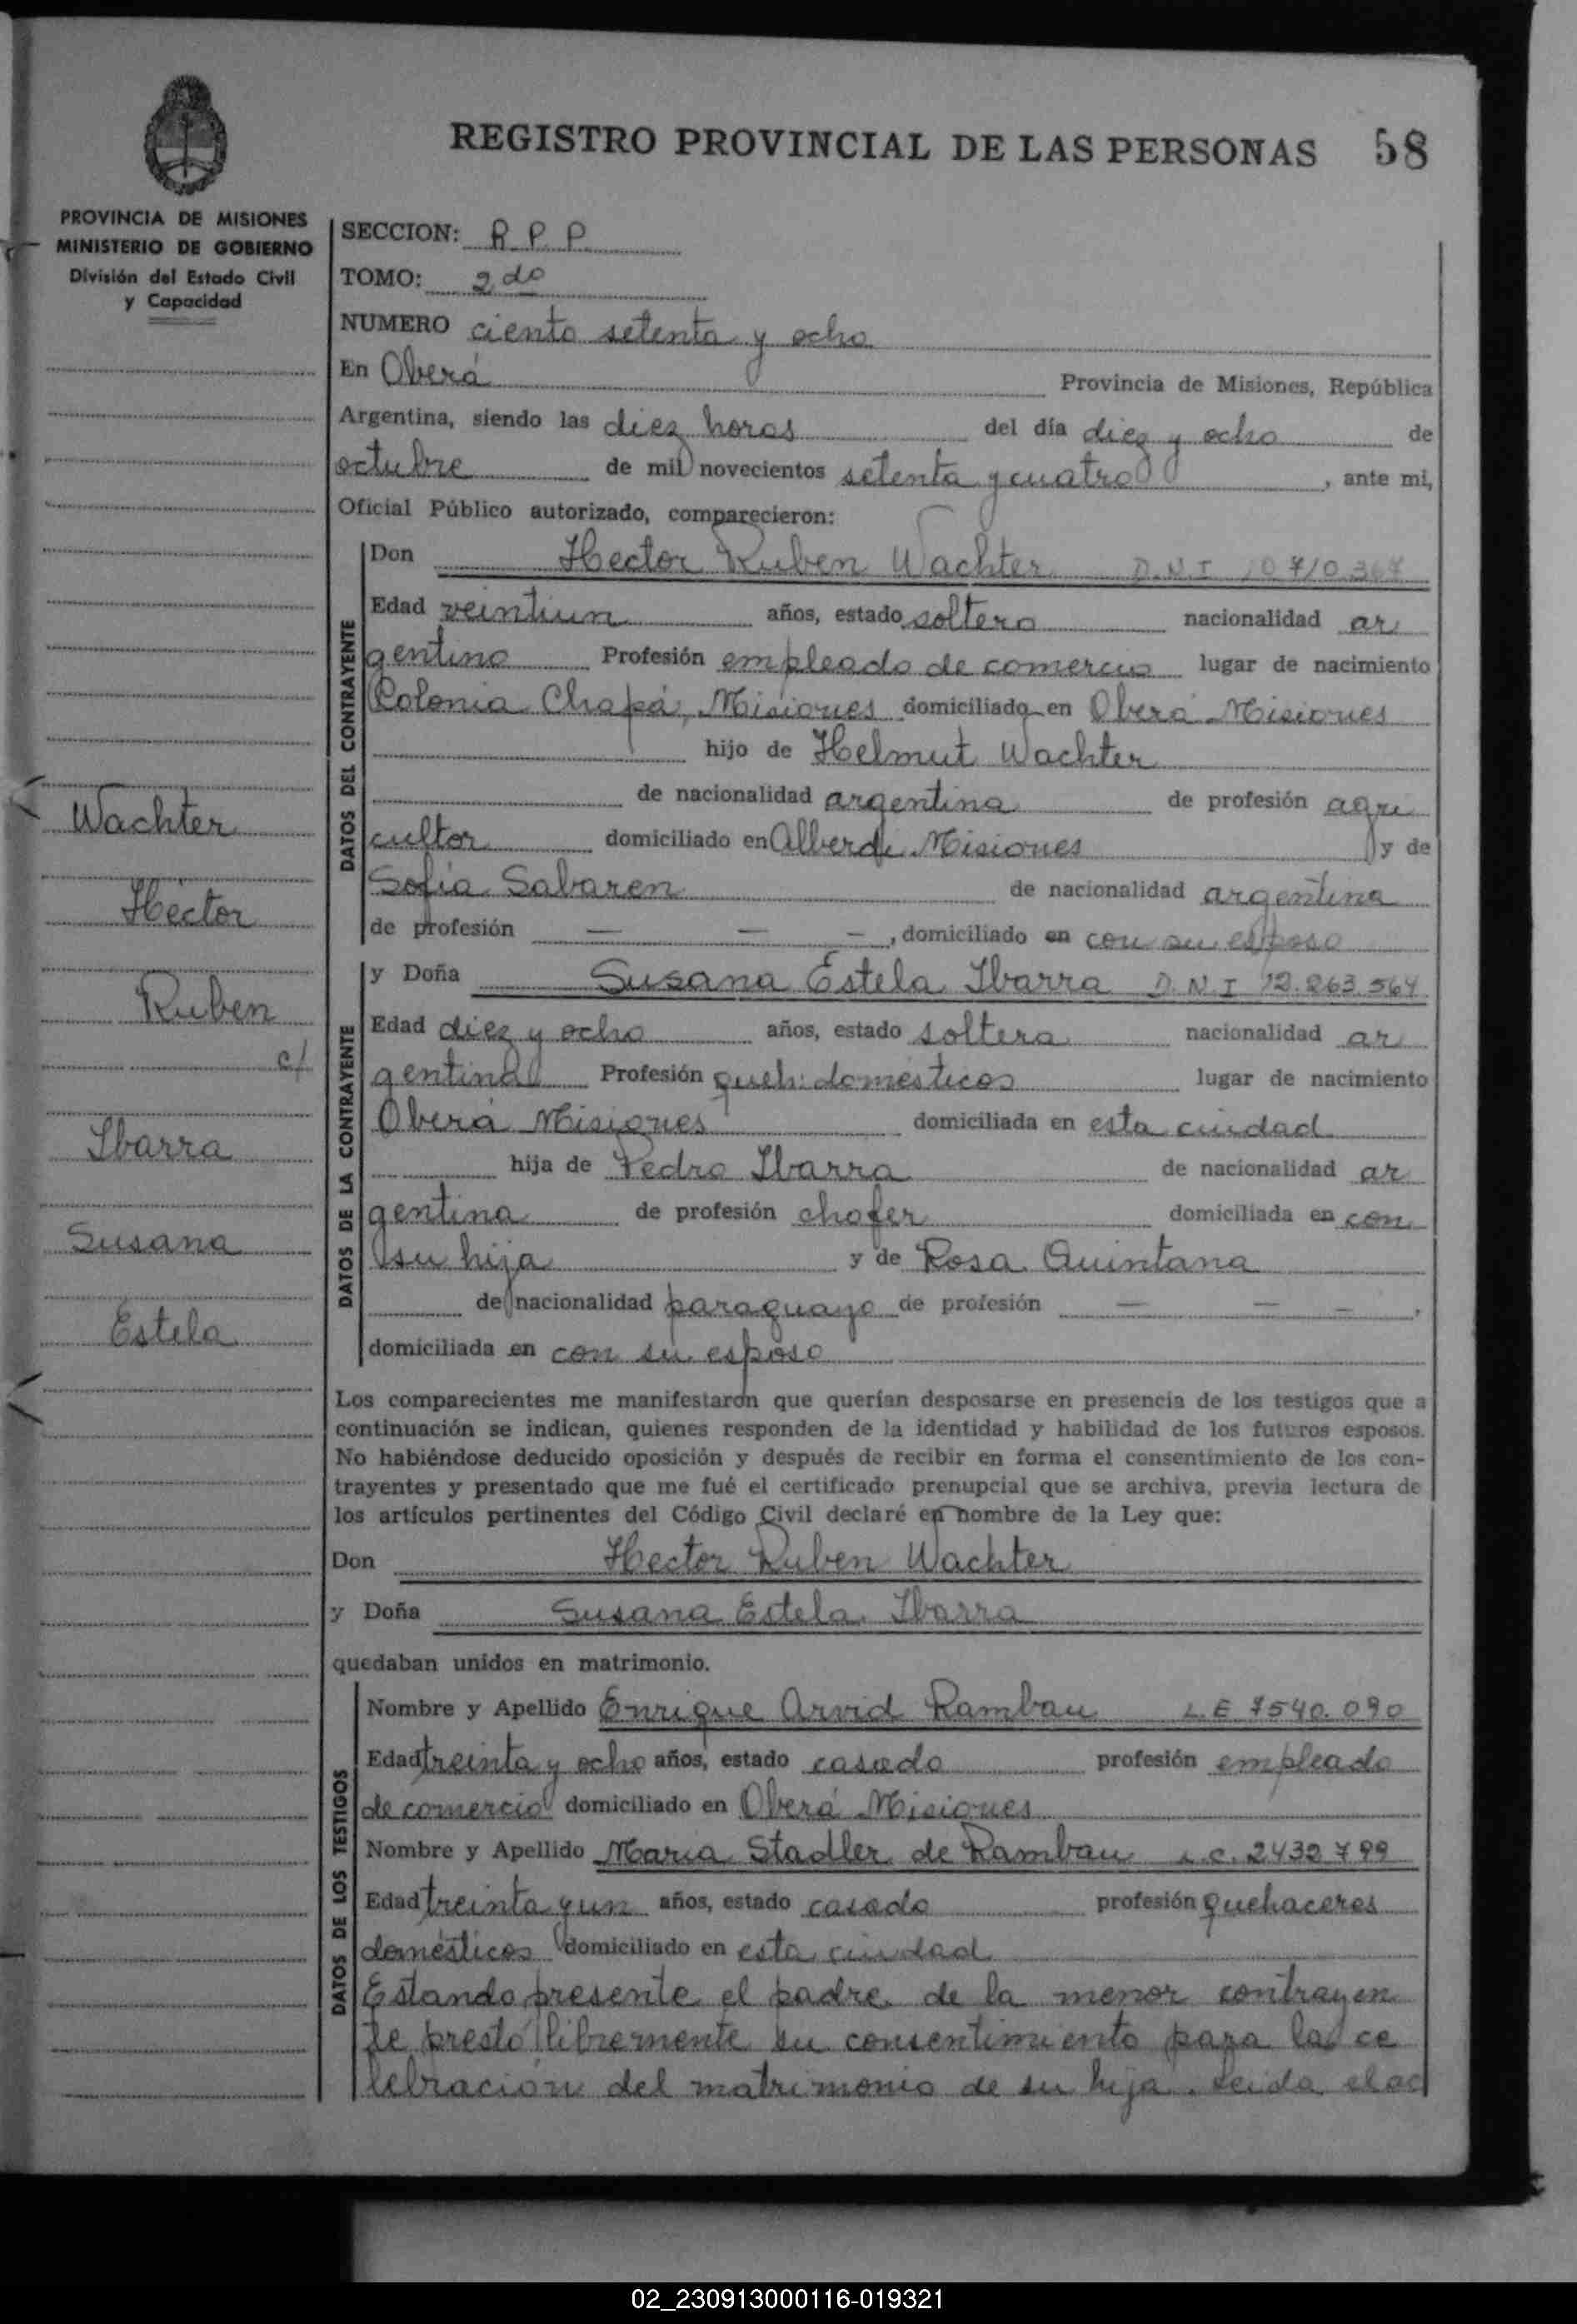 REGISTRO PROVINCIAL DE LAS PERSONAS 58
PROVINCIA DE MISIONES
MINISTERIO DE GOBIERNO
División del Estado Civil
y Capacidad
Wachter
Hector
Ruben
c/
Ibarra
Susana
Estela
SECCION: R P P
TOMO: 2do
NUMERO ciento setenta y ocho
En Oberá Provincia de Misiones, República
Argentina, siendo las diez horas del día diez y ocho de
octubre de mil novecientos setenta y cuatro, ante mi,
Oficial Público autorizado, comparecieron:
DATOS DEL CONTRAYENTE
Don Hector Ruben Wachter D.N.I
Edad veintiun años, estado soltero nacionalidad ar
gentino Profesión empleado de comercio lugar de nacimiento
Colonia Chapá, Misiones domiciliado en Oberá Misiones
hijo de Helmut Wachter
de nacionalidad argentina de profesión agri
cultor domiciliado en Alberdi Misiones y de
Sofia Sabaren de nacionalidad argentina
de profesión — — —, domiciliado en con su esposo
DATOS DE LA CONTRAYENTE
y Doña Susana Estela Ibarra D.N.I 12.263.564
Edad diez y ocho años, estado soltera nacionalidad ar
gentina Profesión queh: domésticos lugar de nacimiento
Oberá Misiones domiciliada en esta ciudad
hija de Pedro Ibarra de nacionalidad ar
gentina de profesión chofer domiciliada en con
su hija y de Rosa Quintana
de nacionalidad paraguayo de profesión — — —,
domiciliada en con su esposo
Los comparecientes me manifestaron que querían desposarse en presencia de los testigos que a
continuación se indican, quienes responden de la identidad y habilidad de los futuros esposos.
No habiéndose deducido oposición y después de recibir en forma el consentimiento de los con-
trayentes y presentado que me fué el certificado prenupcial que se archiva, previa lectura de
los artículos pertinentes del Código Civil declaré en nombre de la Ley que:
Don Hector Ruben Wachter
y Doña Susana Estela Ibarra
quedaban unidos en matrimonio.
DATOS DE LOS TESTIGOS
Nombre y Apellido Enrique Arvid Rambau L.E 7540.090
Edad treinta y ocho años, estado casado profesión empleado
de comercio domiciliado en Oberá Misiones
Nombre y Apellido Maria Stadler de Rambau L.C. 2432799
Edad treinta y un años, estado casado profesión quehaceres
domésticos domiciliado en esta ciudad
Estando presente el padre de la menor contrayen
te prestó libremente su consentimiento para la ce
lebración del matrimonio de su hija. Leida el ac
02_230913000116-019321